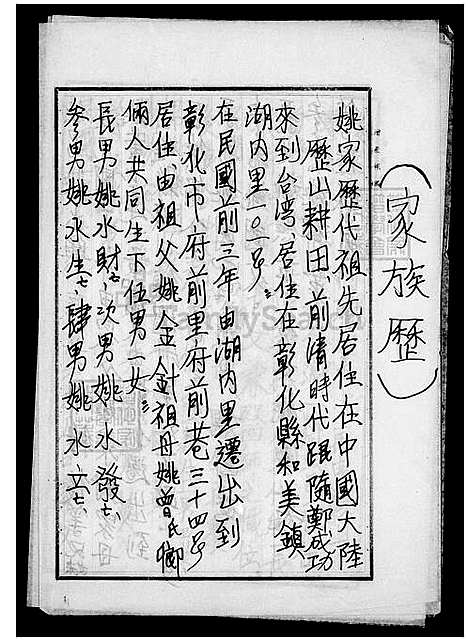 (家族歷)
姚家歷代祖先居住在中國大陸
歷山耕田、前清時代跟隨鄭成功
來到台湾、居住在彰化縣和美鎮
湖内里一〇一号。
在民國前三年由湖内里遷出到
彰化市、府前里府前巷三十四号
居住、由祖父姚金針祖母姚曾氏
倆人共同生下伍男一女。
長男姚水財、次男姚水發、
参男姚水生、肆男姚水